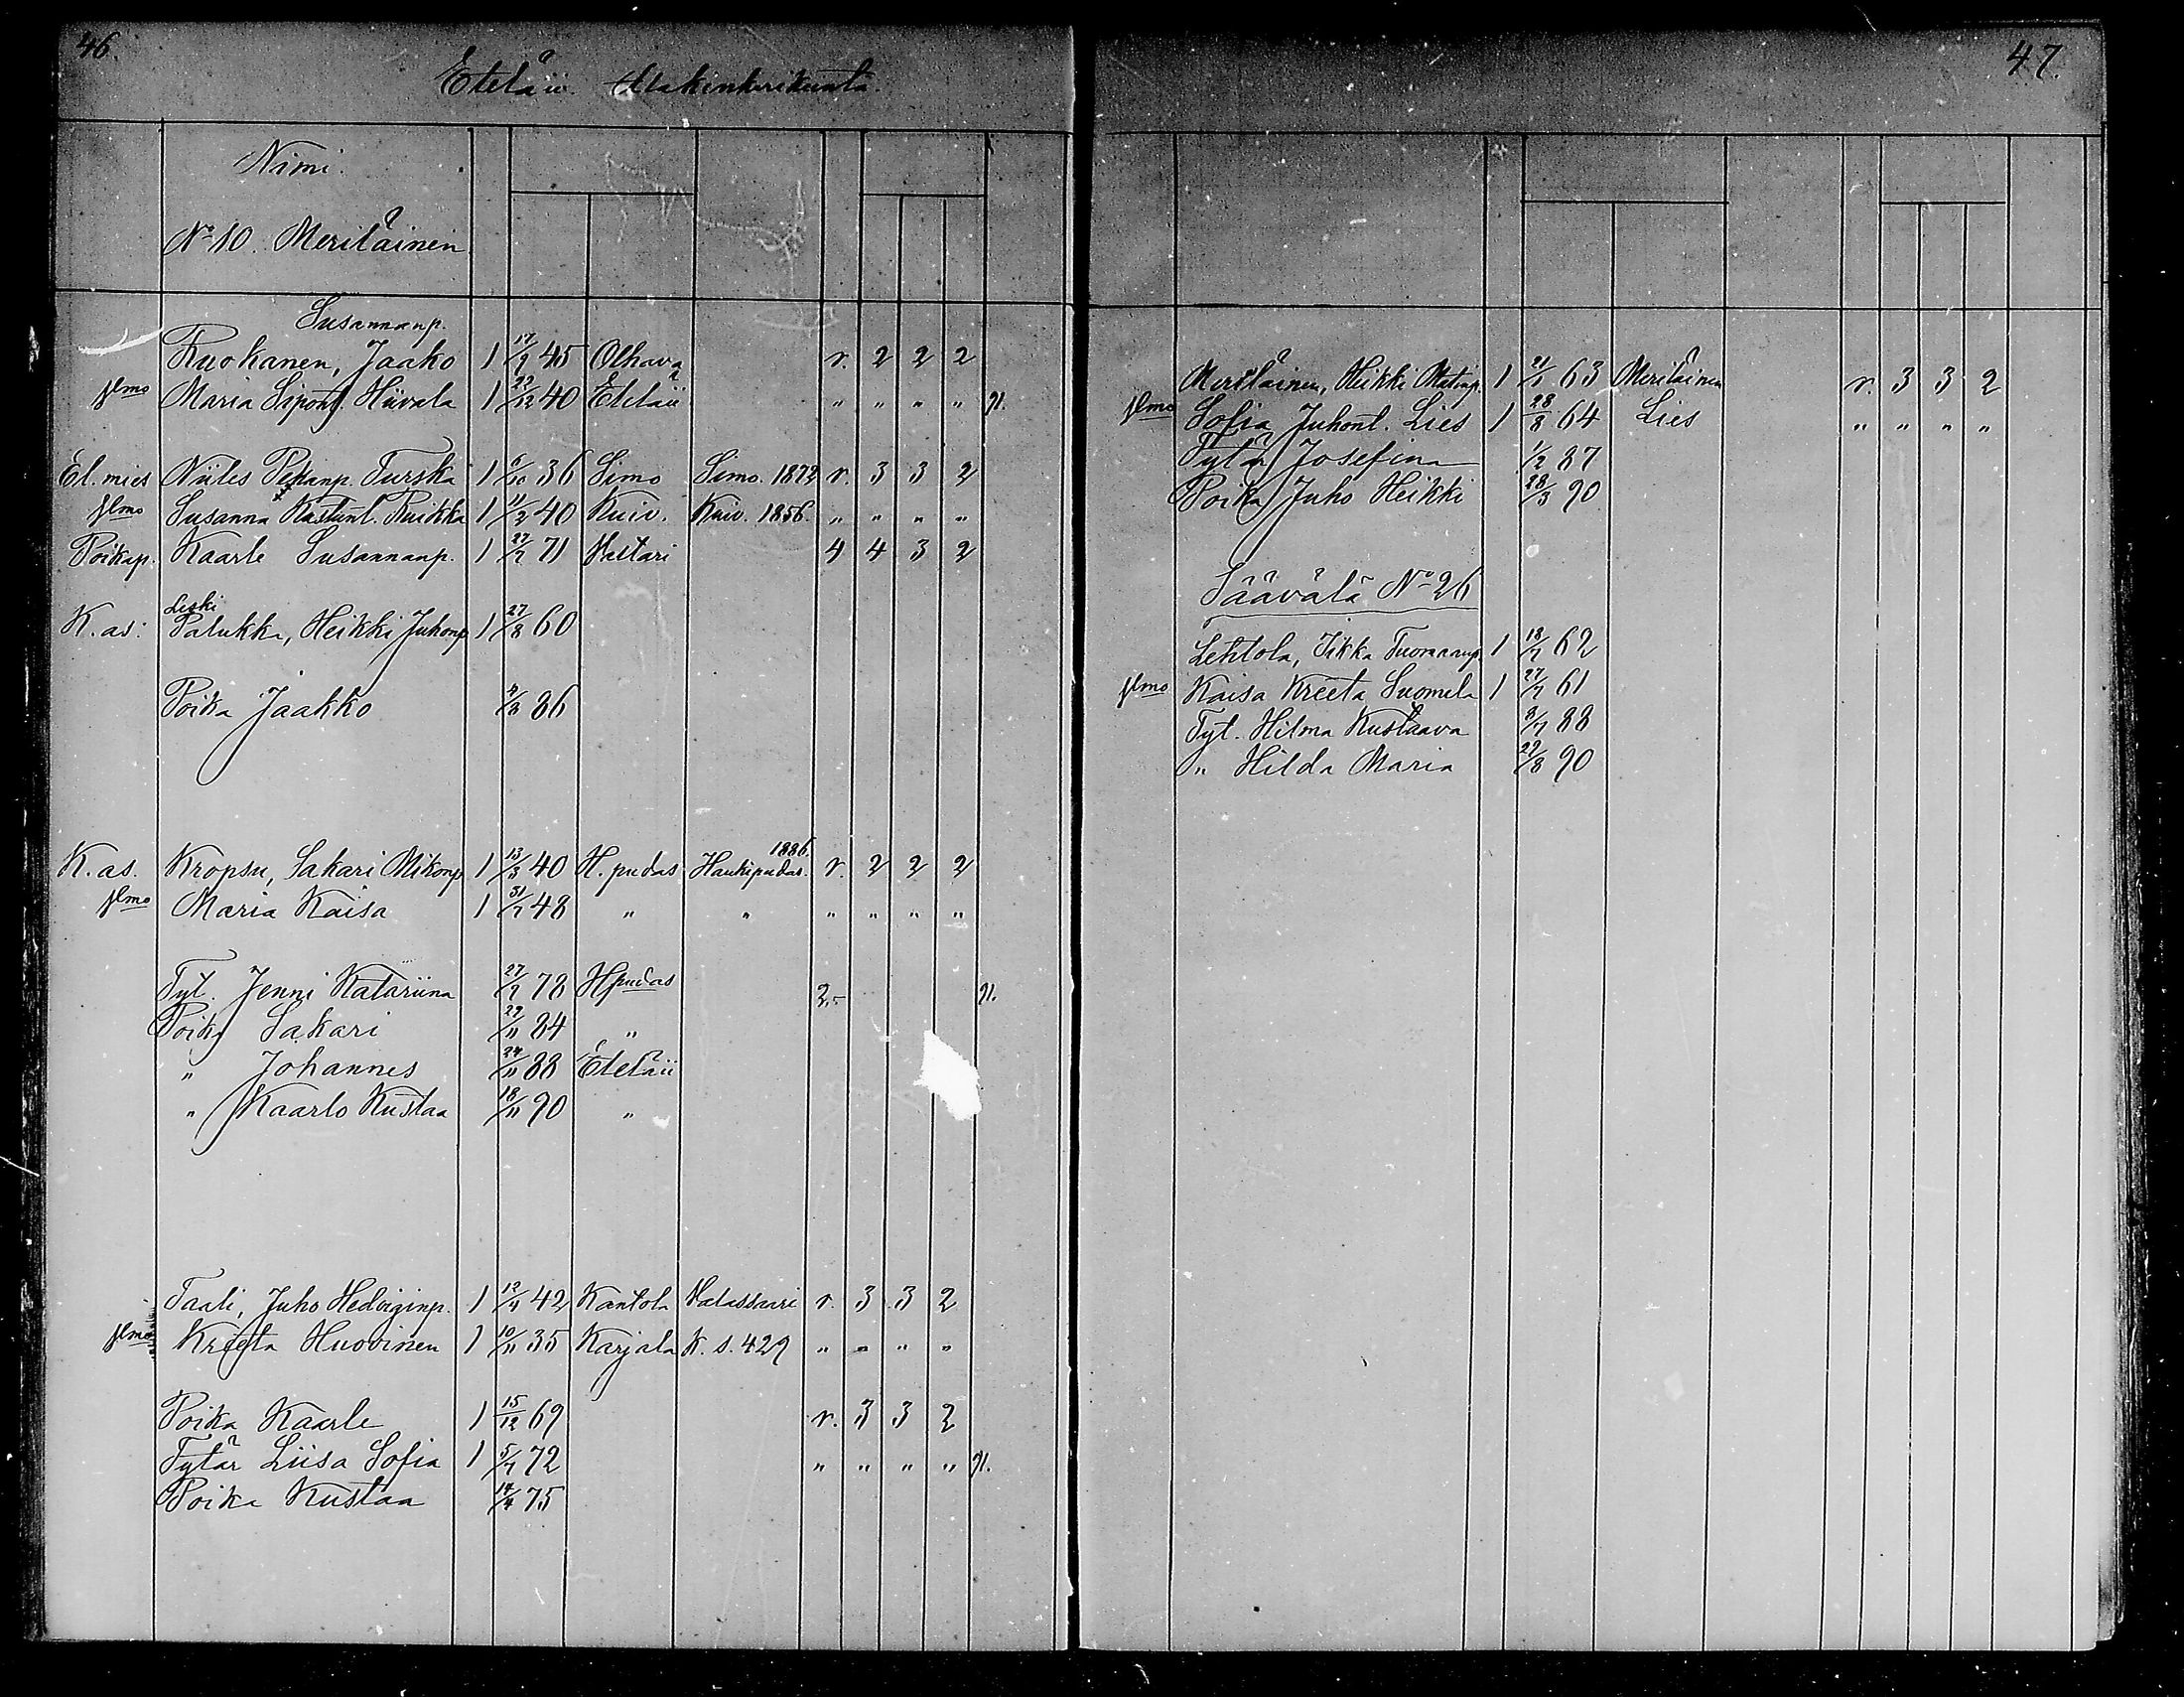 46.
Eteläii. Alakinkerikunta.
Nimi.
No 10. Meriläinen
Susannanp.
Ruokanen, Jaako 1 17/9 45 Olhava v. 2 2 2
Vmo Maria Sipont. Hiivala 1 22/12 40 Eteläii " " " " 91.
Et. mies Niiles Pekanp. Turska 1 6/10 36 Simo Simo. 1872 v. 3 3 2
Vmo Susanna Kustunt. Ruikka 1 11/2 40 Kuiv. Kuiv. 1856. " " " "
Poikap. Kaarle Susannanp. 1 27/7 71 Valtari 4 4 3 2
Leski
K. as. Palukka, Heikki Juhonp 1 27/8 60
Poika Jaakko 4/3 86
1886.
K. as. Kropsu, Sakari Mikonp 1 13/3 40 H. pudas Haukipudas. v. 2 2 2
Vmo Maria Kaisa 1 31/7 48 " " " " " "
Tyt. Jenni Katariina 27/9 78 Hpudas 2.- 91.
Poika Sakari 29/11 84 "
" Johannes 24/11 88 Eteläii
" Kaarlo Kustaa 18/11 90 "
Taali, Juho Hedviginp. 1 12/4 42 Kantola Halassaari v. 3 3 2
Vmo Kreeta Huovinen 1 10/11 35 Karjala K. s. 429 " " " "
Poika Kaarle 1 15/12 69 v. 3 3 2
Tytär Liisa Sofia 1 5/7 72 " " " " 91.
Poika Kustaa 14/4 75
47.
Meriläinen, Heikki Matinp. 1 21/1 63 Meriläinen v. 3 3 2
Vmo Sofia Juhont. Lies 1 28/8 64 Lies " " " "
Tytär Josefina 1/2 87
Poika Juho Heikki 28/3 90
Säävälä No 26
Lehtola, Iikka Tuomaanp. 1 18/7 62
Vmo Kaisa Kreeta Suomela 1 27/7 61
Tyt. Hilma Kustaava 8/7 88
" Hilda Maria 29/8 90